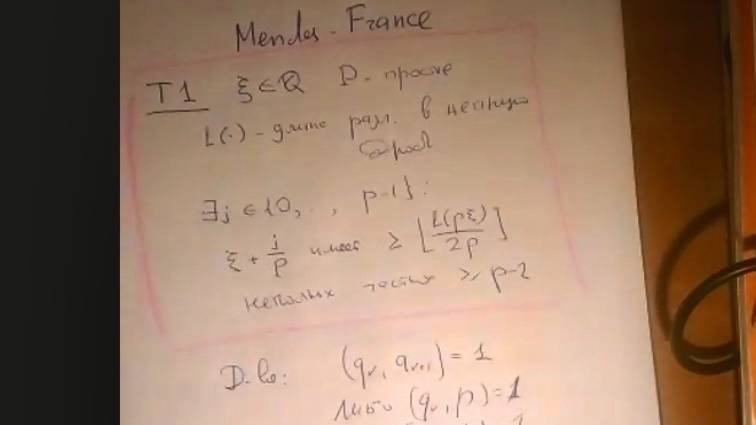 Mendes-France
T1 ξ∈ℚ p - простое
L(·) - длина разл. в цепную
дробь
∃j ∈ {0, .., p-1}:
ξ + j/p имеет ≥ ⌊L(pξ)/2p⌋
неполных частных ≥ p-2
D-во: (qᵥ, qᵥ₊₁) = 1
либо (qᵥ, p) = 1